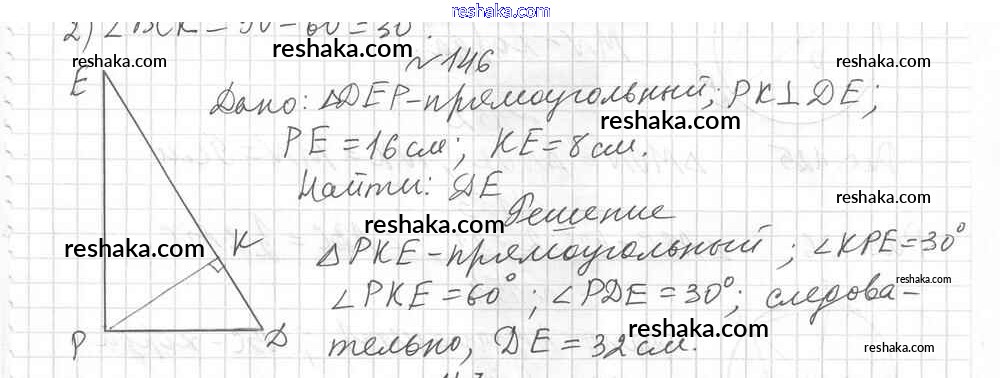 reshaka.com
2) ∠BCK = 90 - 60 = 30°.
№146
Дано: △DEP-прямоугольный; PK⊥DE;
PE = 16 см; KE = 8 см.
Найти: DE
Решение
△PKE-прямоугольный; ∠KPE = 30°
∠PKE = 60°; ∠PDE = 30°; следова-
тельно, DE = 32 см.
E
K
P
D
reshaka.com
reshaka.com
reshaka.com
reshaka.com
reshaka.com
reshaka.com
reshaka.com
reshaka.com
reshaka.com
reshaka.com
reshaka.com
reshaka.com